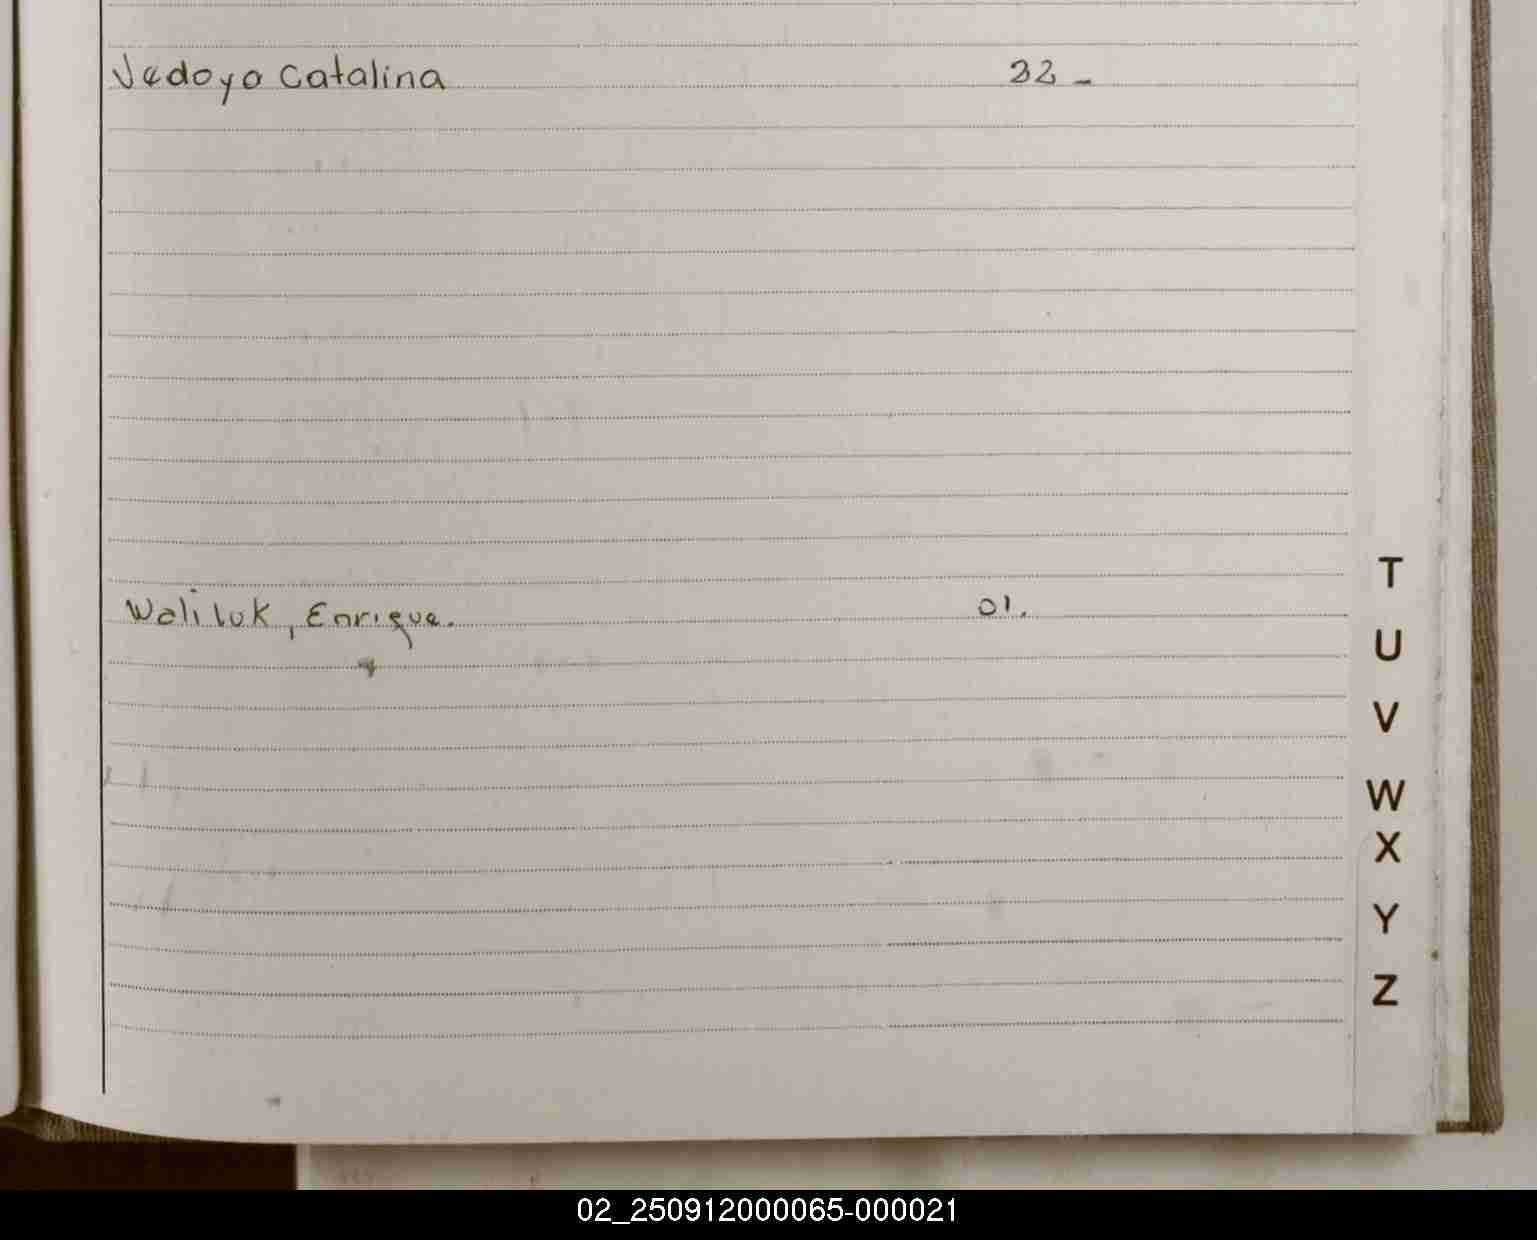 Vedoya Catalina 32 -
Waliluk, Enrique. 01.
T
U
V
W
X
Y
Z
02_250912000065-000021